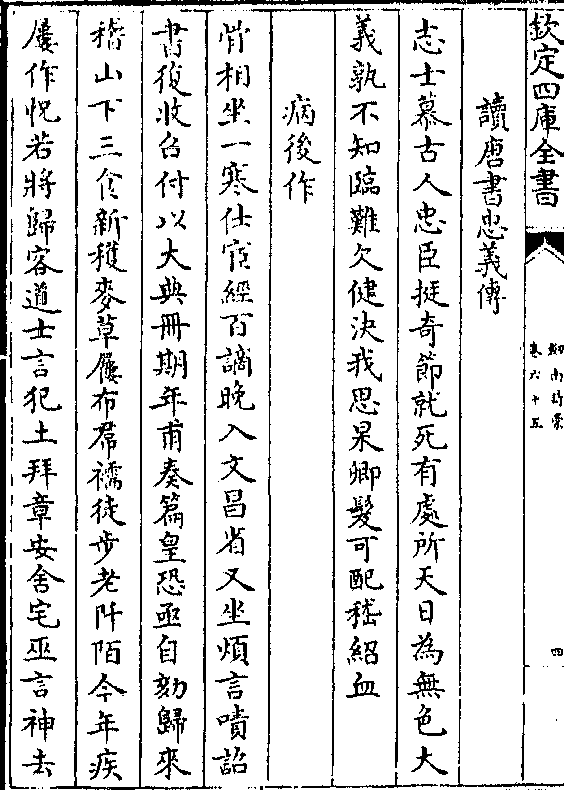 欽定四庫全書
劒南詩藁
卷六十五
四
讀唐書忠義傳
志士慕古人忠臣挺奇節就死有處所天日為無色大
義孰不知臨難欠健決我思杲卿髮可配嵇紹血
病後作
骨相坐一寒仕宦經百謫晚入文昌省又坐煩言嘖詔
書復收召付以大典冊期年甫奏篇皇恐亟自劾歸來
稽山下三食新穫麥草屨布裙襦徒步老阡陌今年疾
屢作怳若將歸客道士言犯土拜章安舍宅巫言神去